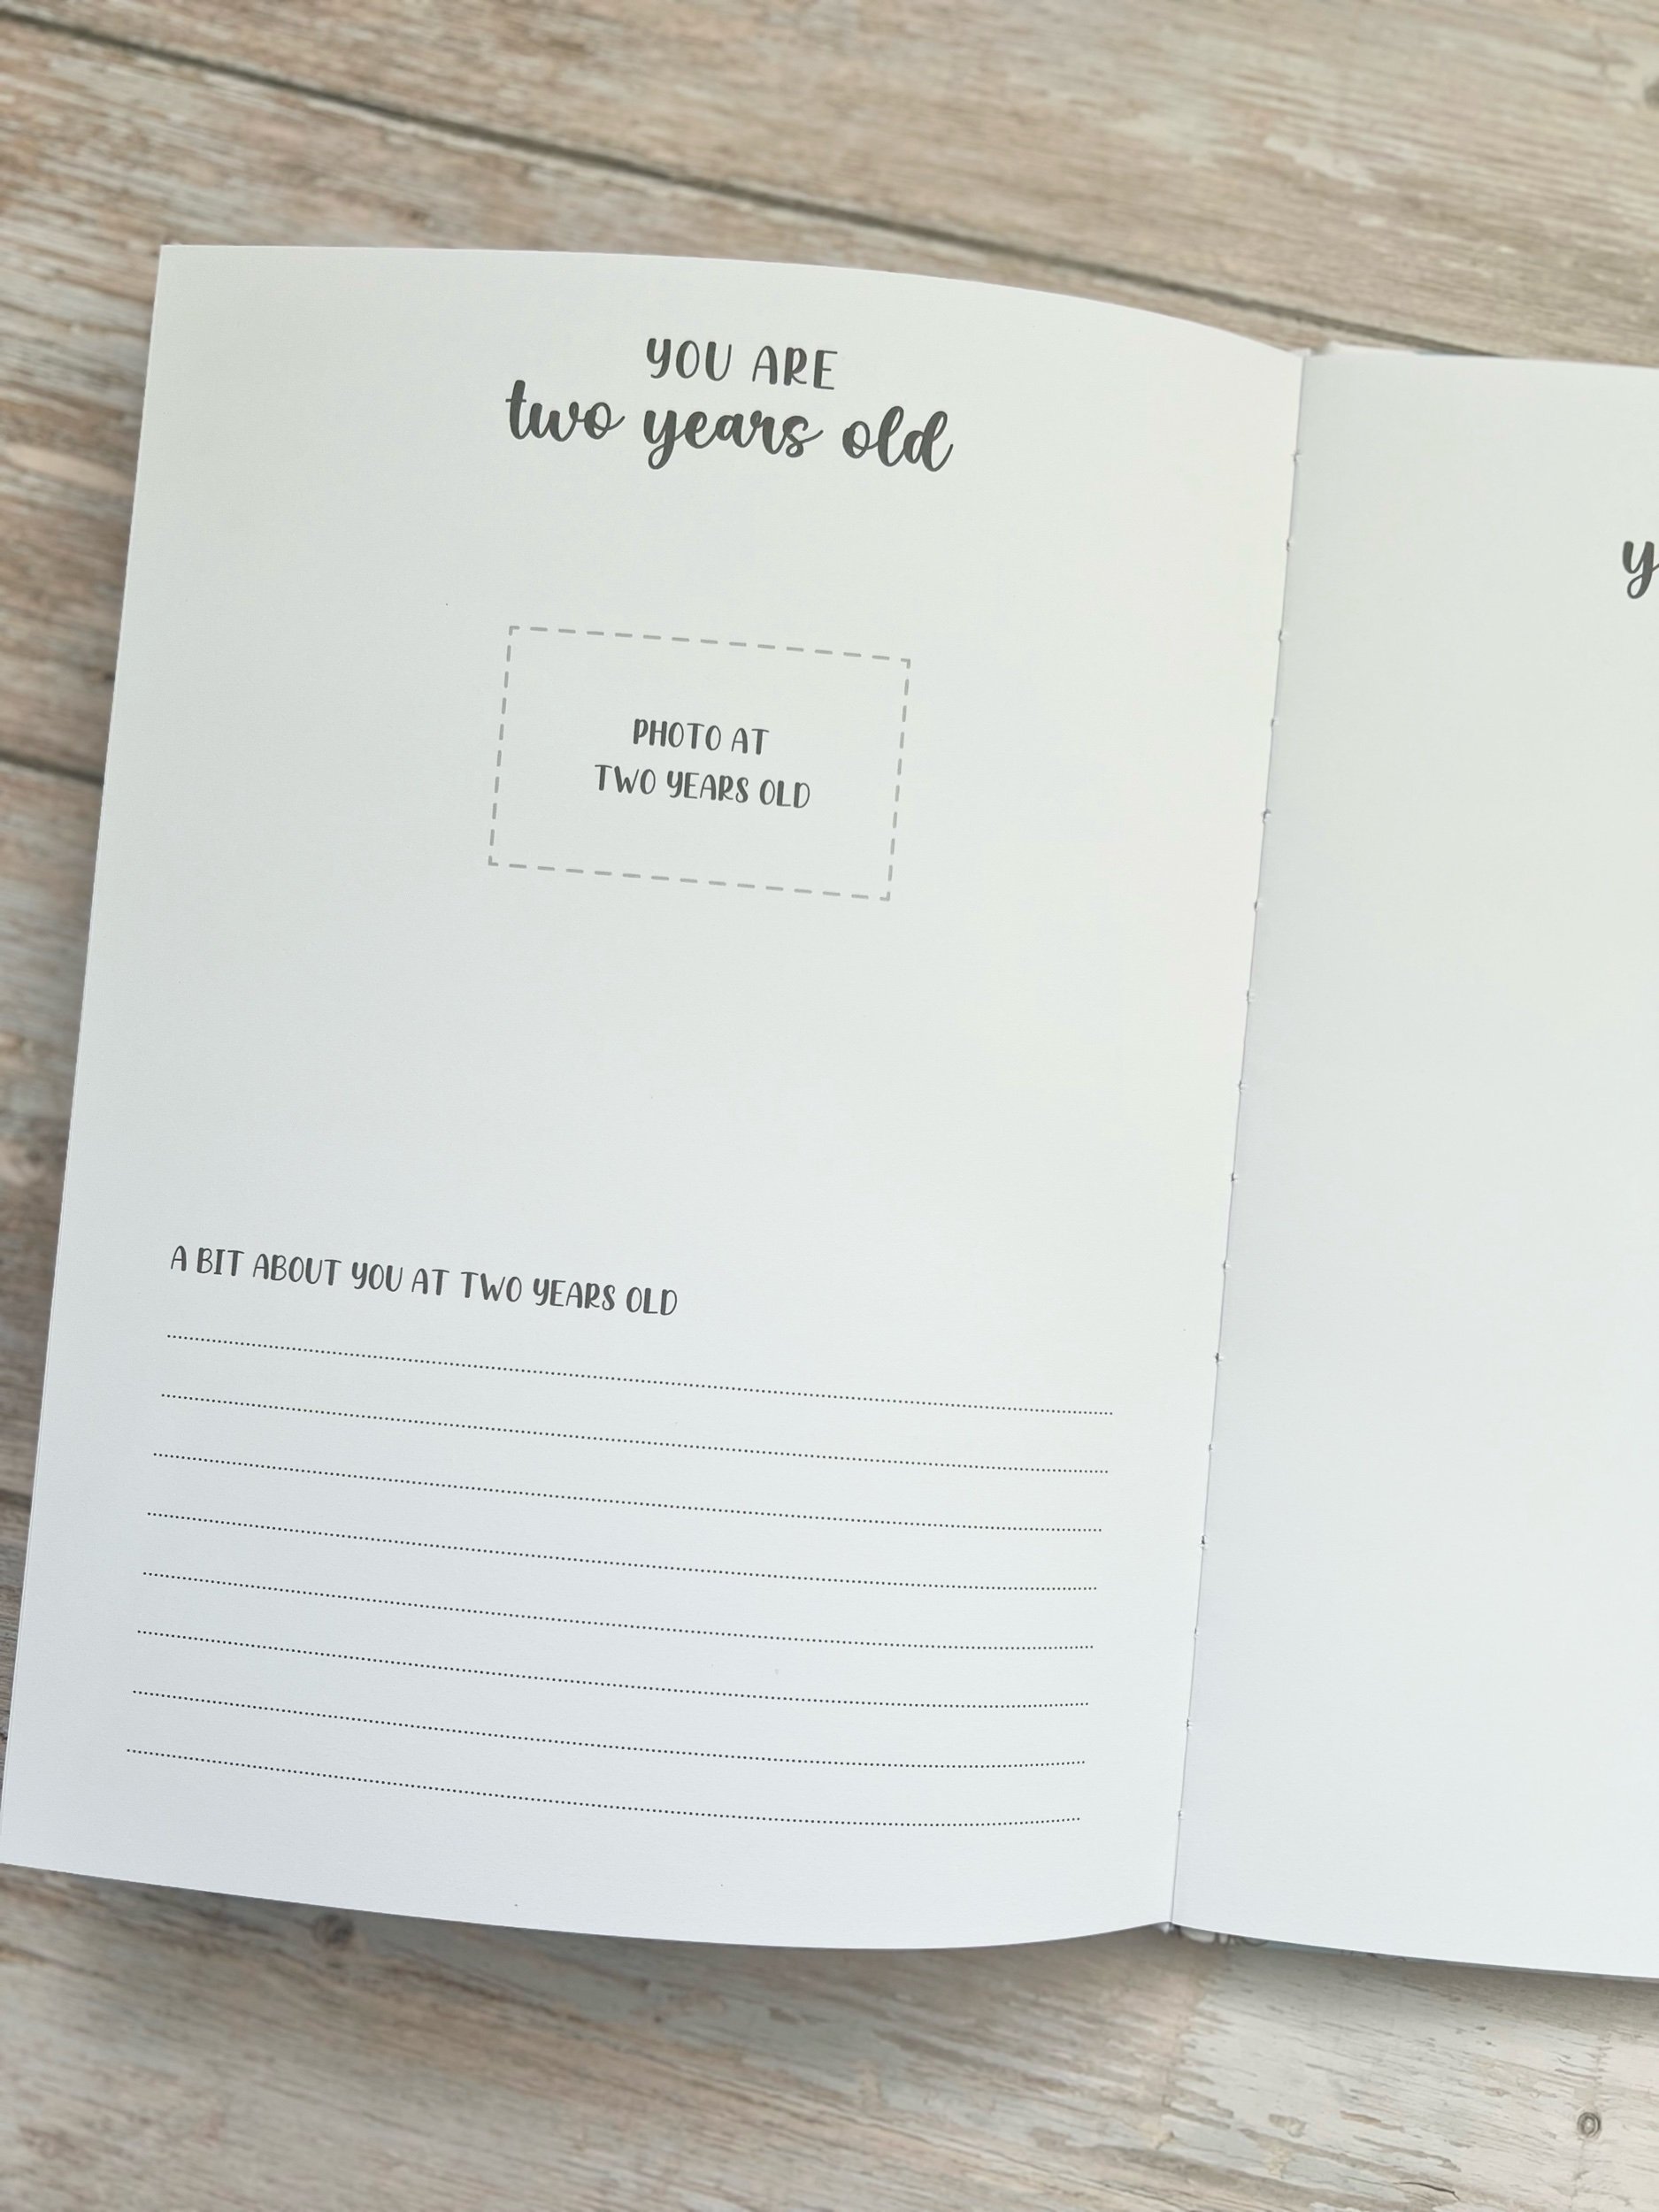 YOU ARE
two years old
PHOTO AT
TWO YEARS OLD
A BIT ABOUT YOU AT TWO YEARS OLD